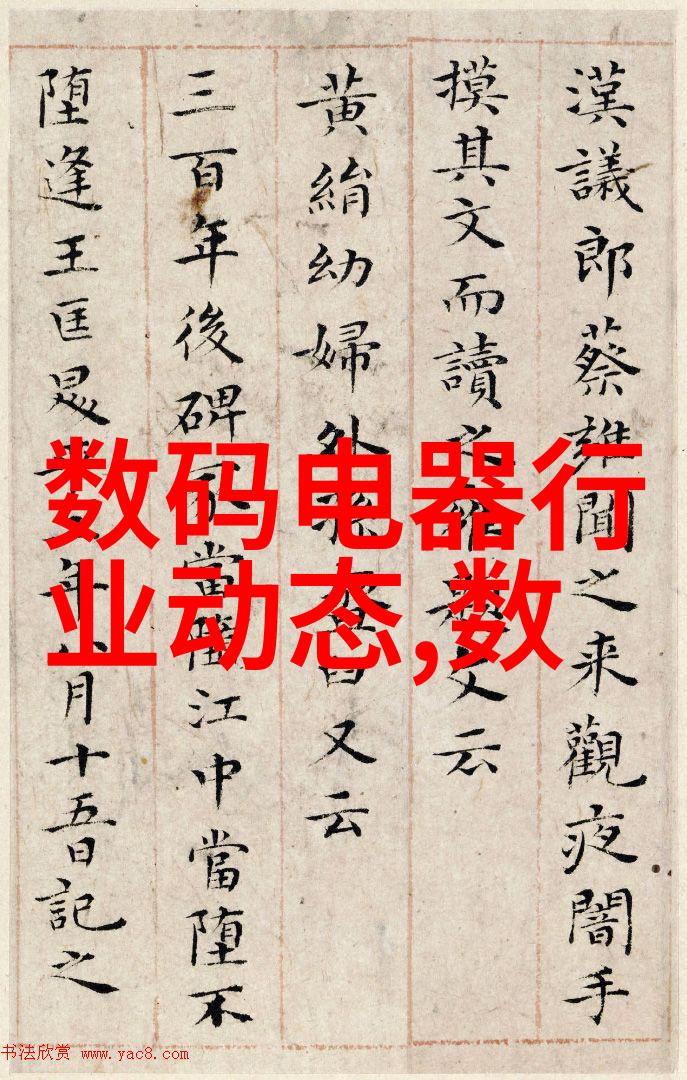 漢議郎蔡雍聞之来觀夜闇手
摸其文而讀之文云
黄絹幼婦外孫臼又云
三百年後碑當江中當堕不
堕逢王匡年八月十五日記之
数码电器行
业动态,数
书法欣赏 www.yac8.com